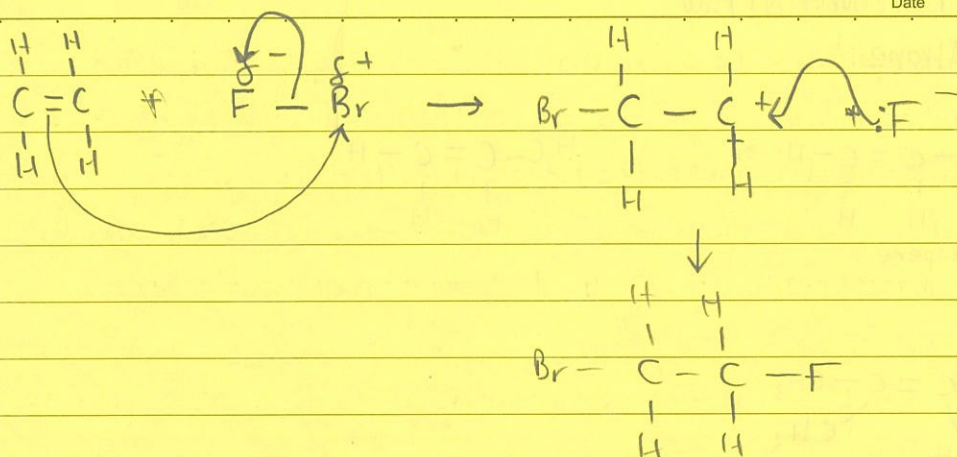 Date
H H H H
δ- δ+
C = C + F - Br → Br - C - C + :F -
H H H H
↓
H H
Br - C - C - F
H H